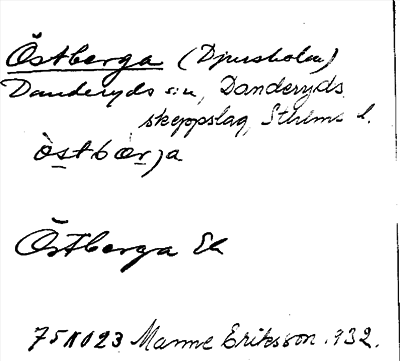 Östberga (Djursholm)
Danderyds sn, Danderyds
skeppslag, Sthlms l.
òstbærja
Östberga Ek
75 K 023 Manne Eriksson 1932.